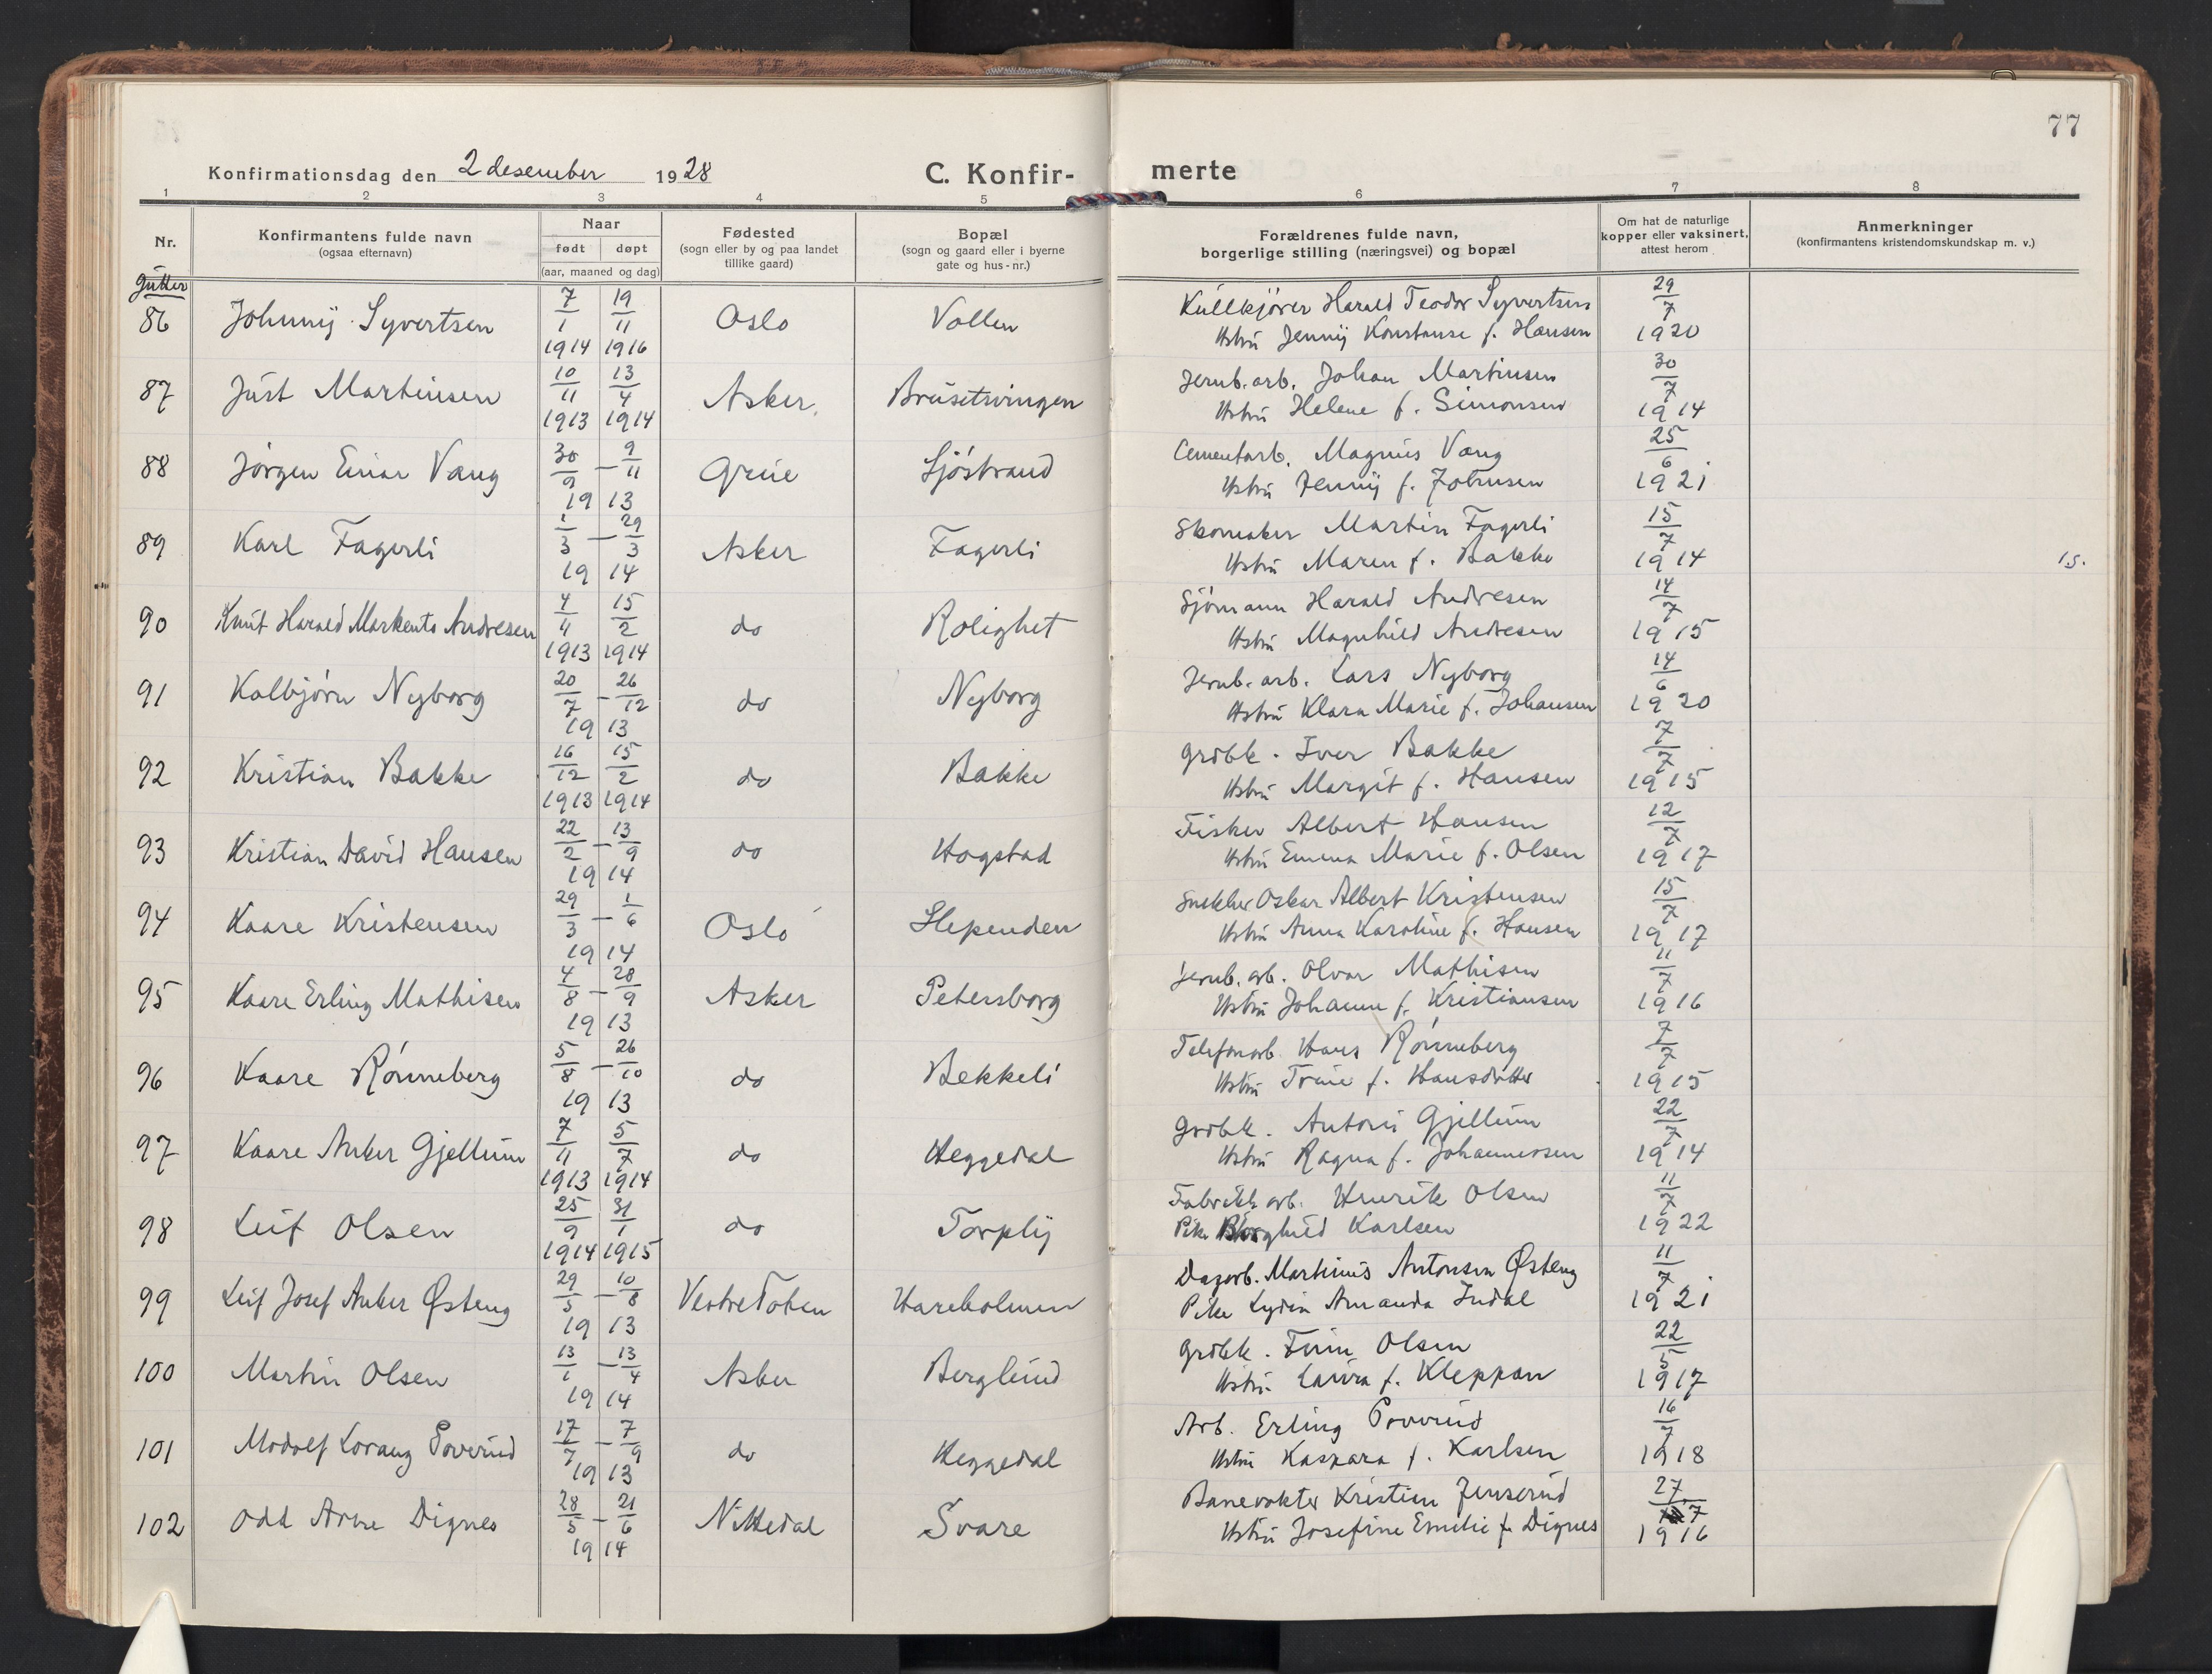 77
Konfirmationsdag den 2 desember 1928 C. Konfir- merte
1 2 3 4 5 6 7 8
Nr. Konfirmantens fulde navn (ogsaa efternavn) Naar født døpt (aar, maaned og dag) Fødested (sogn eller by og paa landet tillike gaard) Bopæl (sogn og gaard eller i byerne gate og hus-nr.) Forældrenes fulde navn, borgerlige stilling (næringsvei) og bopæl Om hat de naturlige kopper eller vaksinert, attest herom Anmerkninger (konfirmantens kristendomskundskap m. v.)
Gutter
86 Johnny Syvertsen 7/1 1914 19/11 1916 Oslo Vollen Kullkjører Harald Teodor Syvertsen 29/7
Hstru Jenny Konstanse f. Hansen 1920
87 Just Martinsen 10/11 1913 13/4 1914 Asker Brusetsvingen Jernb. arb. Johan Martinsen 30/7
Hstru Helene f. Simonsen 1914
88 Jörgen Einar Vang 30/9 - 9/11 1913 Grue Sjöstrand Cementarb. Magnus Vang 25/6
Hstru Jenny f. Johnsen 1921
89 Karl Fagerli 1/3 - 29/3 1914 Asker Fagerli Skomaker Martin Fagerli 15/7
Hstru Maren f. Bakke 1914 15.
90 Knut Harald Markents Andresen 4/4 1913 15/2 1914 do Rolighet Sjömann Harald Andresen 14/7
Hstru Magnhild Andresen 1915
91 Kolbjörn Nyborg 20/7 - 26/12 1913 do Nyborg Jernb. arb. Lars Nyborg 14/6
Hstru Klara Marie f. Johansen 1920
92 Kristian Bakke 16/12 1913 15/2 1914 do Bakke Grdbk. Iver Bakke 7/7
Hstru Margit f. Hansen 1915
93 Kristian David Hansen 22/2 - 13/9 1914 do Hogstad Fisker Albert Hansen 12/7
Hstru Emma Marie f. Olsen 1917
94 Kaare Kristensen 29/3 - 1/6 1914 Oslo Slependen Snekker Oskar Albert Kristensen 15/7
Hstru Anna Karoline f. Hansen 1917
95 Kaare Erling Mathisen 4/8 - 28/9 1913 Asker Petersborg Jernb. arb. Olvar Mathisen 11/7
Hstru Johanne f. Kristiansen 1916
96 Kaare Rönneberg 5/8 - 26/10 1913 do Bekkeli Telefonarb. Hans Rönneberg 7/7
Hstru Trine f. Hansdatter 1915
97 Kaare Anker Gjellum 7/11 1913 5/7 1914 do Heggedal Grdbk. Anton Gjellum 22/7
Hstru Ragna f. Johannessen 1914
98 Leif Olsen 25/9 1914 31/1 1915 do Torply Fabrikk arb. Henrik Olsen 11/7
Pike Borghild Karlsen 1922
99 Leif Josef Anker Østeng 29/5 - 10/8 1913 Vestre Toten Hareholmen Dagarb. Martinius Antonsen Østeng 11/7
Pike Lydia Amanda Indal 1921
100 Martin Olsen 13/1 - 13/4 1914 Asker Berglund Grdbk. Finn Olsen 22/5
Hstru Laura f. Kleppan 1917
101 Modolf Lorang Poverud 17/7 - 7/9 1913 do Heggedal Arb. Erling Poverud 16/7
Hstru Kaspara f. Karlsen 1918
102 Odd Arne Dignes 28/5 - 21/6 1914 Nittedal Svare Banevokter Kristian Jenserud 27/7
Hstru Josefine Emilie f. Dignes 1916